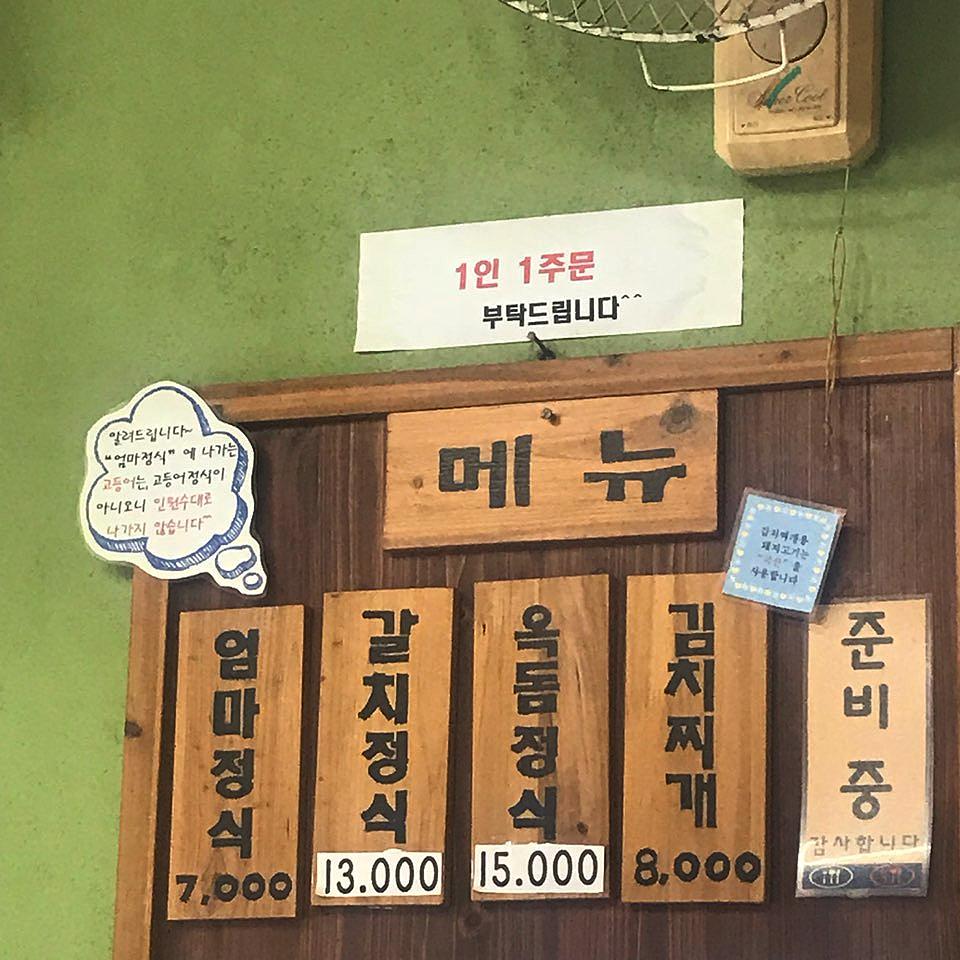 1인 1주문
부탁드립니다^^
알려드립니다~
"엄마정식" 에 나가는
고등어는, 고등어정식이
아니오니 인원수대로
나가지 않습니다~
메뉴
김치찌개용
돼지고기는
"국산"을
사용합니다
엄마정식
7,000
갈치정식
13.000
옥돔정식
15.000
김치찌개
8,000
준비중
감사합니다